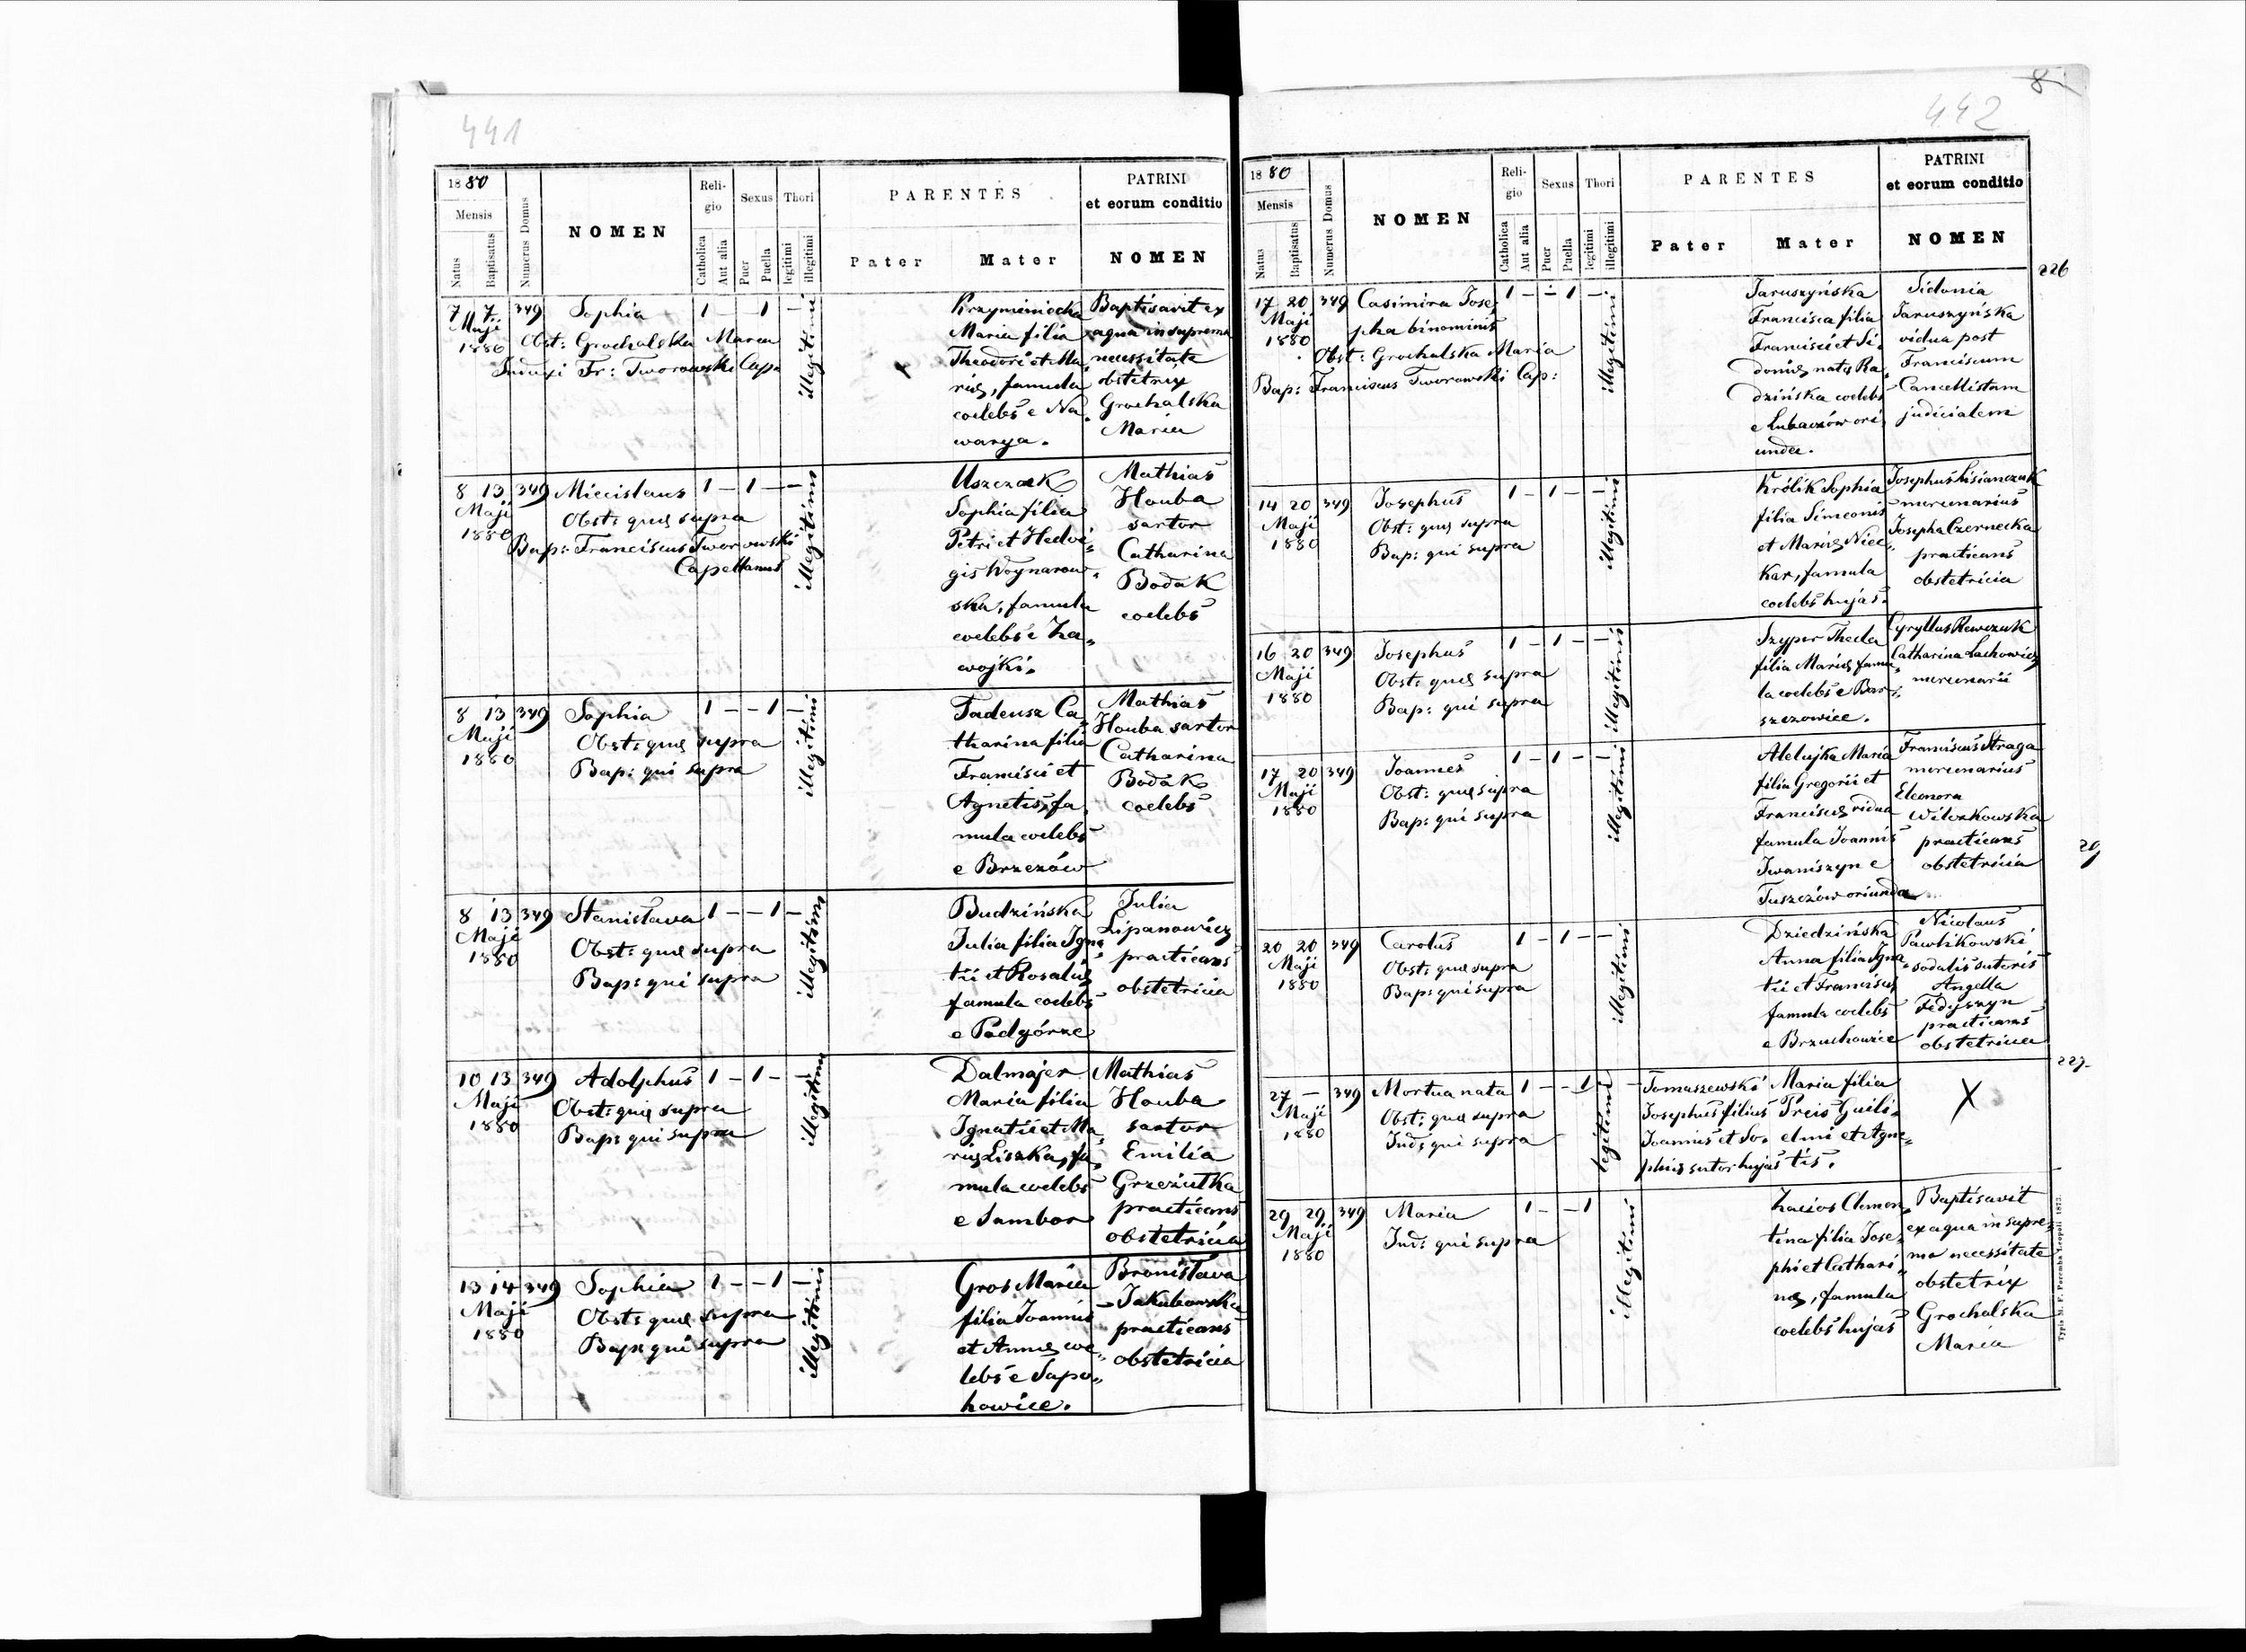 441
1880
Mensis
Natus
Baptisatus
Numerus Domus
NOMEN
Reli-
gio
Catholica
Aut alia
Sexus
Puer
Puella
Thori
legitimi
illegitimi
PARENTES
Pater
Mater
PATRINI
et eorum conditio
NOMEN
7 7 349 Sophia 1 — — 1 —
Maji
1880
Obst: Grochalska Maria
Induxi Fr: Tworowski Capp
illegitimi
Maria filia
Theodori et Ma,
riæ, famula
coelebs e Na,
warya.
Baptisavit ex
aqua in suprema
necessitate
obstetrix
Grochalska
Maria
8 13 349 Miecislaus 1 — 1 — —
Maji
1880
Obst: quæ supra
Bap: Franciscus Tworowski
Capellanus
illegitimi
Uszczak
Sophia filia
Petri et Hedvi,
gis Woynarow,
ska, famula
coelebs e Za,
wojki.
Mathias
Houba
sartor
Catharina
Bodak
coelebs
8 13 349 Sophia 1 — — 1 —
Maji
1880
Obst: quæ supra
Bap: qui supra
illegitimi
Tadeusz Ca,
tharina filia
Francisci et
Agnetis, fa,
mula coelebs
e Brzezów
Mathias
Houba sartor
Catharina
Bodak
coelebs
8 13 349 Stanislava 1 — — 1 —
Maji
1880
Obst: quæ supra
Bap: qui supra
illegitimi
Budzińska
Julia filia Igna,
tii et Rosaliæ
famula coelebs
e Podgórze
Julia
Lipanowicz
practicans
obstetricia
10 13 349 Adolphus 1 — 1 — —
Maji
1880
Obst: quæ supra
Bap: qui supra
illegitimi
Dalmajer
Maria filia
Ignatii et Ma,
riæ Liszka, fa,
mula coelebs
e Sambor
Mathias
Houba
sartor
Emilia
Grzeziutka
practicans
obstetricia
13 14 349 Sophia 1 — — 1 —
Maji
1880
Obst: quæ supra
Bap: qui supra
illegitimi
Gros Maria
filia Joannis
et Annæ coe,
lebs e Sapo,
howice.
Bronislava
Jakubowska
practicans
obstetricia
8
442
1880
Mensis
Natus
Baptisatus
Numerus Domus
NOMEN
Reli-
gio
Catholica
Aut alia
Sexus
Puer
Puella
Thori
legitimi
illegitimi
PARENTES
Pater
Mater
PATRINI
et eorum conditio
NOMEN
226
17 20 349 Casimira Jose,
Maji
1880
pha binominis 1 — — 1 —
Obst: Grochalska Maria
Bap: Franciscus Tworowski Cap:
illegitimi
Jaruszyńska
Francisca filia
Francisci et Si,
doniæ natæ Ra,
dzińska coelebs
e Lubaczów ori,
unda.
Sidonia
Jaruszyńska
vidua post
Franciscum
Cancellistam
judicialem
14 20 349 Josephus 1 — 1 — —
Maji
1880
Obst: quæ supra
Bap: qui supra
illegitimi
Królik Sophia
filia Simeonis
et Mariæ Niec,
kar, famula
coelebs hujas.
Josephus Lisianczuk
mercenarius
Josepha Czernecka
practicans
obstetricia
16 20 349 Josephus 1 — 1 — —
Maji
1880
Obst: quæ supra
Bap: qui supra
illegitimi
Szyper Thecla
filia Mariæ famu,
la coelebs e Bar,
szczowice.
Catharina Lachowicz
mercenarii
17 20 349 Joannes 1 — 1 — —
Maji
1880
Obst: quæ supra
Bap: qui supra
illegitimi
Alelujka Maria
filia Gregorii et
Franciscæ vidua
famula Joannis
Iwaniszyn e
Tuszczów oriunda
Franciscus Straga
mercenarius
Eleonora
Wilczkowska
practicans
obstetricia
29
20 20 349 Carolus 1 — 1 — —
Maji
1880
Obst: quæ supra
Bap: qui supra
illegitimi
Dziedzińska
Anna filia Igna,
tii et Franciscæ
famula coelebs
e Brzuchowice
Nicolaus
Pawlikowski
sodalis sutoris
Angella
Fedyszyn
practicans
obstetricia
227
27 — 349 Mortua nata 1 — — 1 —
Maji
1880
Obst: quæ supra
Ind: qui supra
legitimi
Tomaszewski
Josephus filius
Joannis et So,
phiæ sutor hujas
Maria filia
Preis Guili,
elmi et Agne,
tis.
X
29 29 349 Maria 1 — — 1
Maji
1880
Ind: qui supra
illegitimi
tina filia Jose,
phi et Cathari,
næ, famula
coelebs hujas
Baptisavit
ex aqua in supre,
ma necessitate
obstetrix
Grochalska
Maria
Typis M. F. Poremba Leopoli 1873.